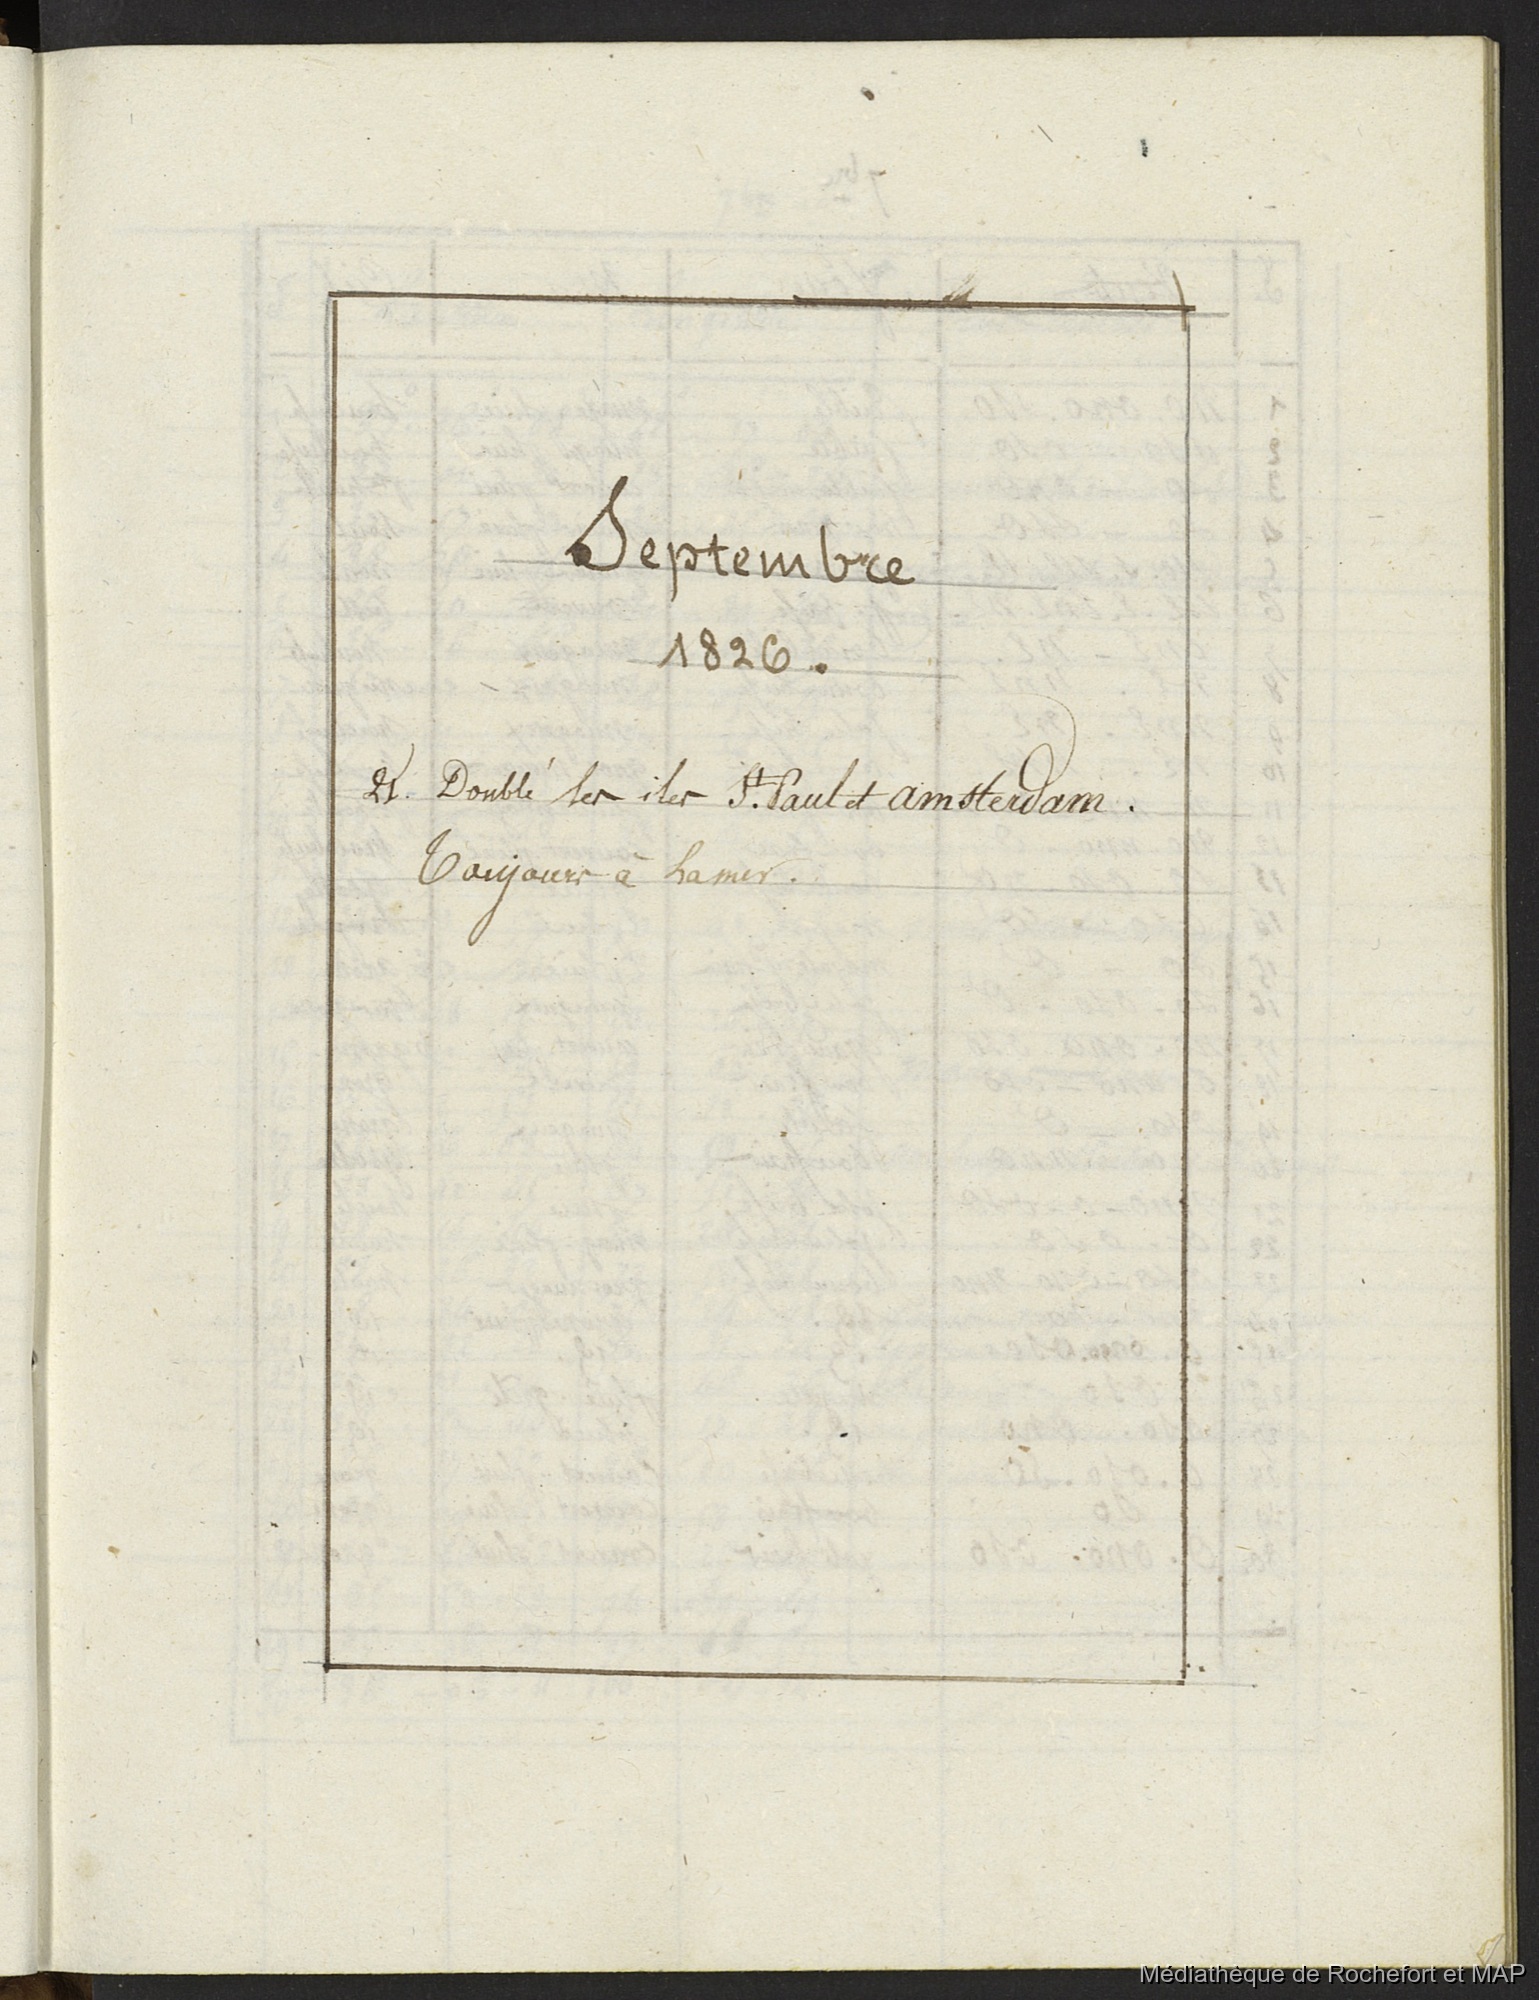 Septembre
1826.
21. Doublé les iles St. Paul et amsterdam.
Toujours à la mer.
Médiathèque de Rochefort et MAP